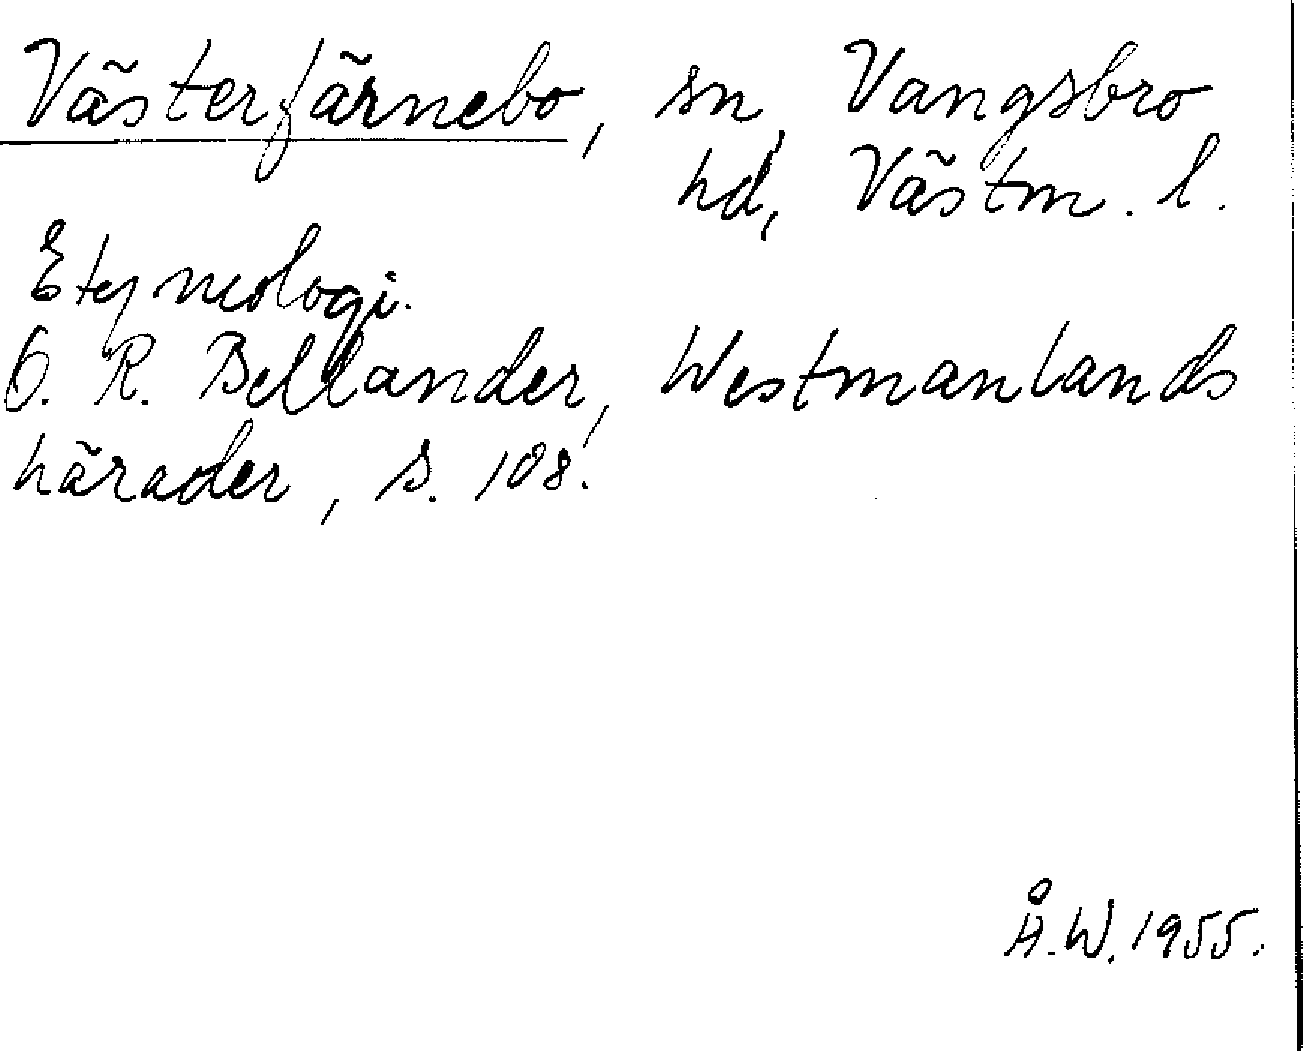 Västerfärnebo, sn, Vangsbro
hd, Västm. l.
Etymologi.
O. R. Bellander, Westmanlands
härader, s. 108.
Å.W. 1955.